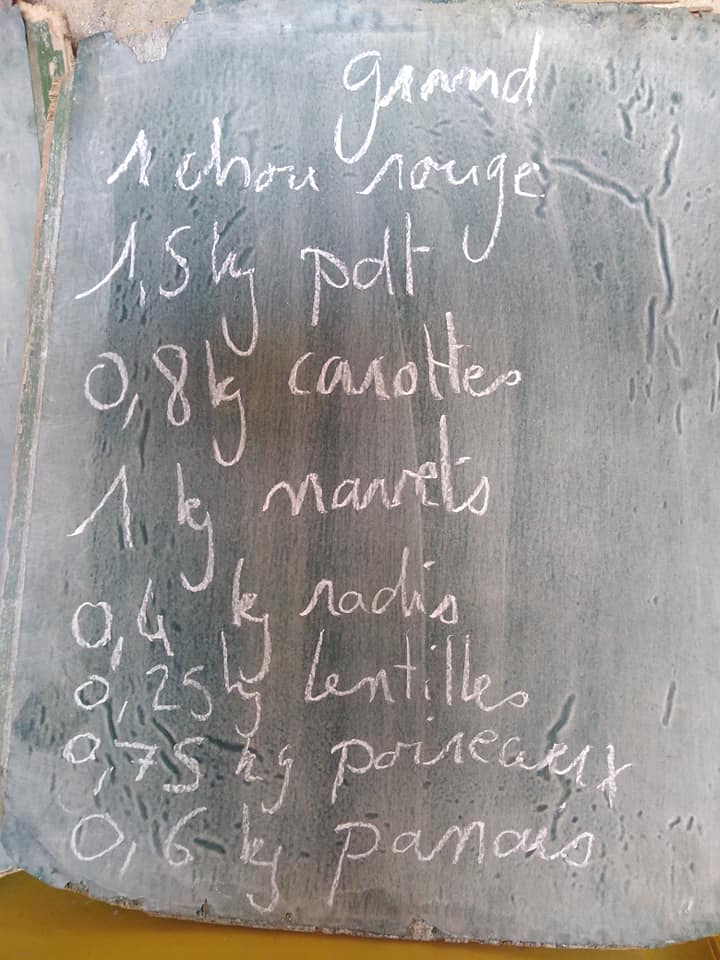 grand
1 chou rouge
1,5 kg pdt
0,8 kg carottes
1 kg navets
0,4 kg radis
0,25 kg lentilles
0,75 kg poireaux
0,6 kg panais